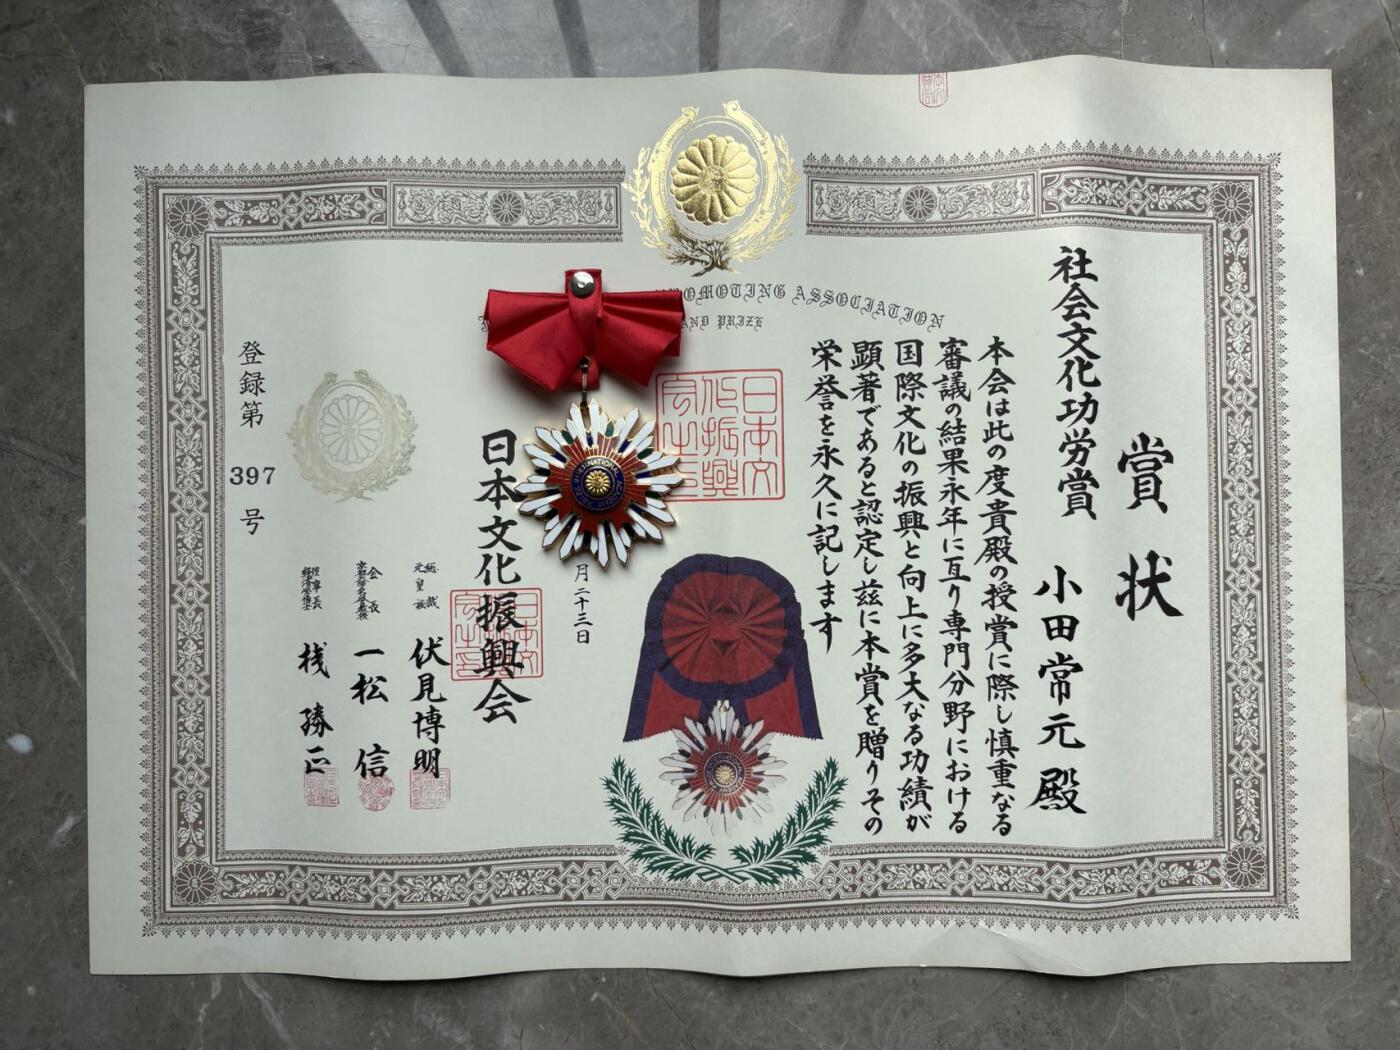 賞状
社会文化功労賞
小田常元殿
本会は此の度貴殿の授賞に際し慎重なる
審議の結果永年に亙り専門分野における
国際文化の振興と向上に多大なる功績が
顕著であると認定し茲に本賞を贈りその
栄誉を永久に記します
PROMOTING ASSOCIATION
AND PRIZE
日本文化振興会之印
月二十三日
INTERNATIONAL ACADEMY
日本文化振興会
総裁
元皇族
伏見博明
会長
一松信
理事長
桟勝正
登録第
397
号